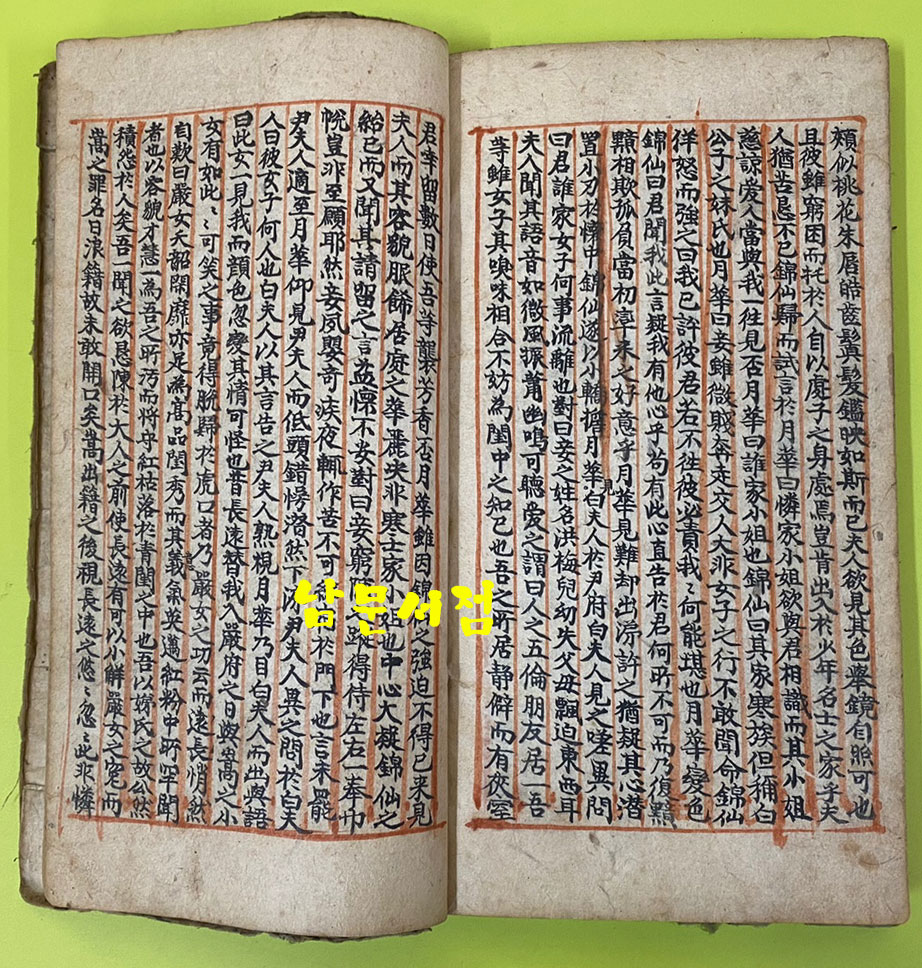 頰似桃花朱唇皓齒鬒髮鑑映如斯而已夫人欲見其色擧鏡自照可也
且彼雖窮困而托於人自以處子之身處焉豈肯出入於少年名士之家乎夫
人猶苦懇不已錦仙歸而試言於月華曰憐家小姐欲與君相識而其小姐
慈諒愛人當與我一往見否月華曰誰家小姐也錦仙曰其家寒族但稱白
公子之妹氏也月華曰妾雖微賤奔走交人大非女子之行不敢聞命錦仙
佯怒而強之曰我已許彼君若不往彼必責我〻何能堪也月華變色
錦仙曰君聞我此言疑我有他心乎苟有此心直告於君何所不可而乃復黯
黯相欺孤負當初率來之好意乎月華見難却出涼許之猶疑其心潛
置小刃於懷中錦仙遂以小轎擔月華見白夫人於尹府白夫人見之嗟異問
曰君誰家女子何事流離也對曰妾之姓名洪梅兒幼失父母飄迫東西耳
夫人聞其語音如微風振簫幽鳴可聽愛之謂曰人之五倫朋友居一吾
等雖女子其嗅味相合不妨為閨中之知己也吾之所居静僻而有夾室
君幸留數日使吾等襲芳香否月華雖因錦仙之強迫不得已來見
夫人而其容貌服餙居處之華麗决非寒士家小姐也中心大疑錦仙之
紿已而又聞其請留之言益懷不安對曰妾窮 蹤得侍左右一奉巾
帨豈非至願耶然妾夙嬰奇疾夜輒作苦不可 於門下也言未罷
尹夫人適至月華仰見尹夫人而低頭錯愕潛然下淚尹夫人異之問於白夫
人曰彼女子何人也白夫人以其言告之尹夫人熟視月華乃目白夫人而出與語
曰此女一見我而顔色忽變其情可怪也昔長遠替我入嚴府之日與嵩之小
女有如此〻可笑之事竟得脫歸於虎口者乃嚴女之功云而遠長悄然
自歎曰嚴女夭韶閑靡亦足為高品閨秀而其義氣英邁紅粉中所罕聞
者也以容貌才慧一為吾之所汚而將守紅枯落於靑閨之中也吾以嫦氏之故公然
積怨於人矣吾一聞之欲懇陳於大人之前使長遠有可以小解嚴女之寃而
嵩之罪名日浪籍故未敢開口矣嵩出籍之後視長遠之悠〻忽〻此非憐
남문서점